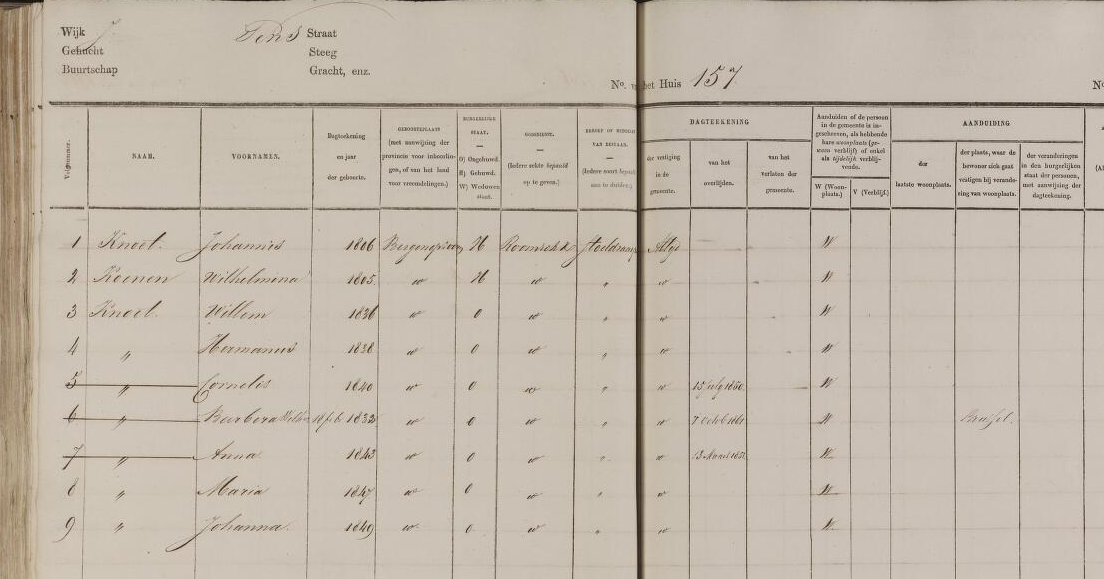 Wijk J Straat
Gehucht Steeg
Buurtschap Gracht, enz.
No. het Huis 157
Volgnummer.
NAAM.
VOORNAMEN.
Dagteekening
en jaar
der geboorte.
GEBOORTEPLAATS
(met aanwijzing der
provincie voor inboorlin-
gen, of van het land
voor vreemdelingen.)
BURGERLIJKE
STAAT.
O) Ongehuwd.
H) Gehuwd.
W) Weduwen
staat.
GODSDIENST.
(Iedere sekte bepaald
op te geven.)
BEROEP OF MIDDELEN
VAN BESTAAN.
(Iedere soort bepaald
aan te duiden.)
DAGTEEKENING
der vestiging
in de
gemeente.
van het
overlijden.
van het
verlaten der
gemeente.
Aanduiden of de persoon
in de gemeente is in-
geschreven, als hebbende
hare woonplaats (ge-
woon verblijf) of enkel
als tijdelijk verblij-
vende.
W (Woon-
plaats.)
V (Verblijf.)
AANDUIDING
der
laatste woonplaats.
der plaats, waar de
bewoner zich gaat
vestigen bij verande-
ring van woonplaats.
der veranderingen
in den burgerlijken
staat der personen,
met aanwijzing der
dagteekening.
1 Knoet. Johannes 1806 H W
2 Koenen Wilhelmina 1805 " H " " " W
3 Knoet. Willem 1836 " O " " " W
4 " Hermanus 1838 " O " " " W
5 " Cornelis 1840 " O " " " 15 july 1850. W
6 " Barbera 18 feb 1832 " O " " " 7 Octob 1861 W
7 " Anna 1843 " O " " " W
8 " Maria 1847 " O " " " W
9 " Johanna. 1849 " O " " " W